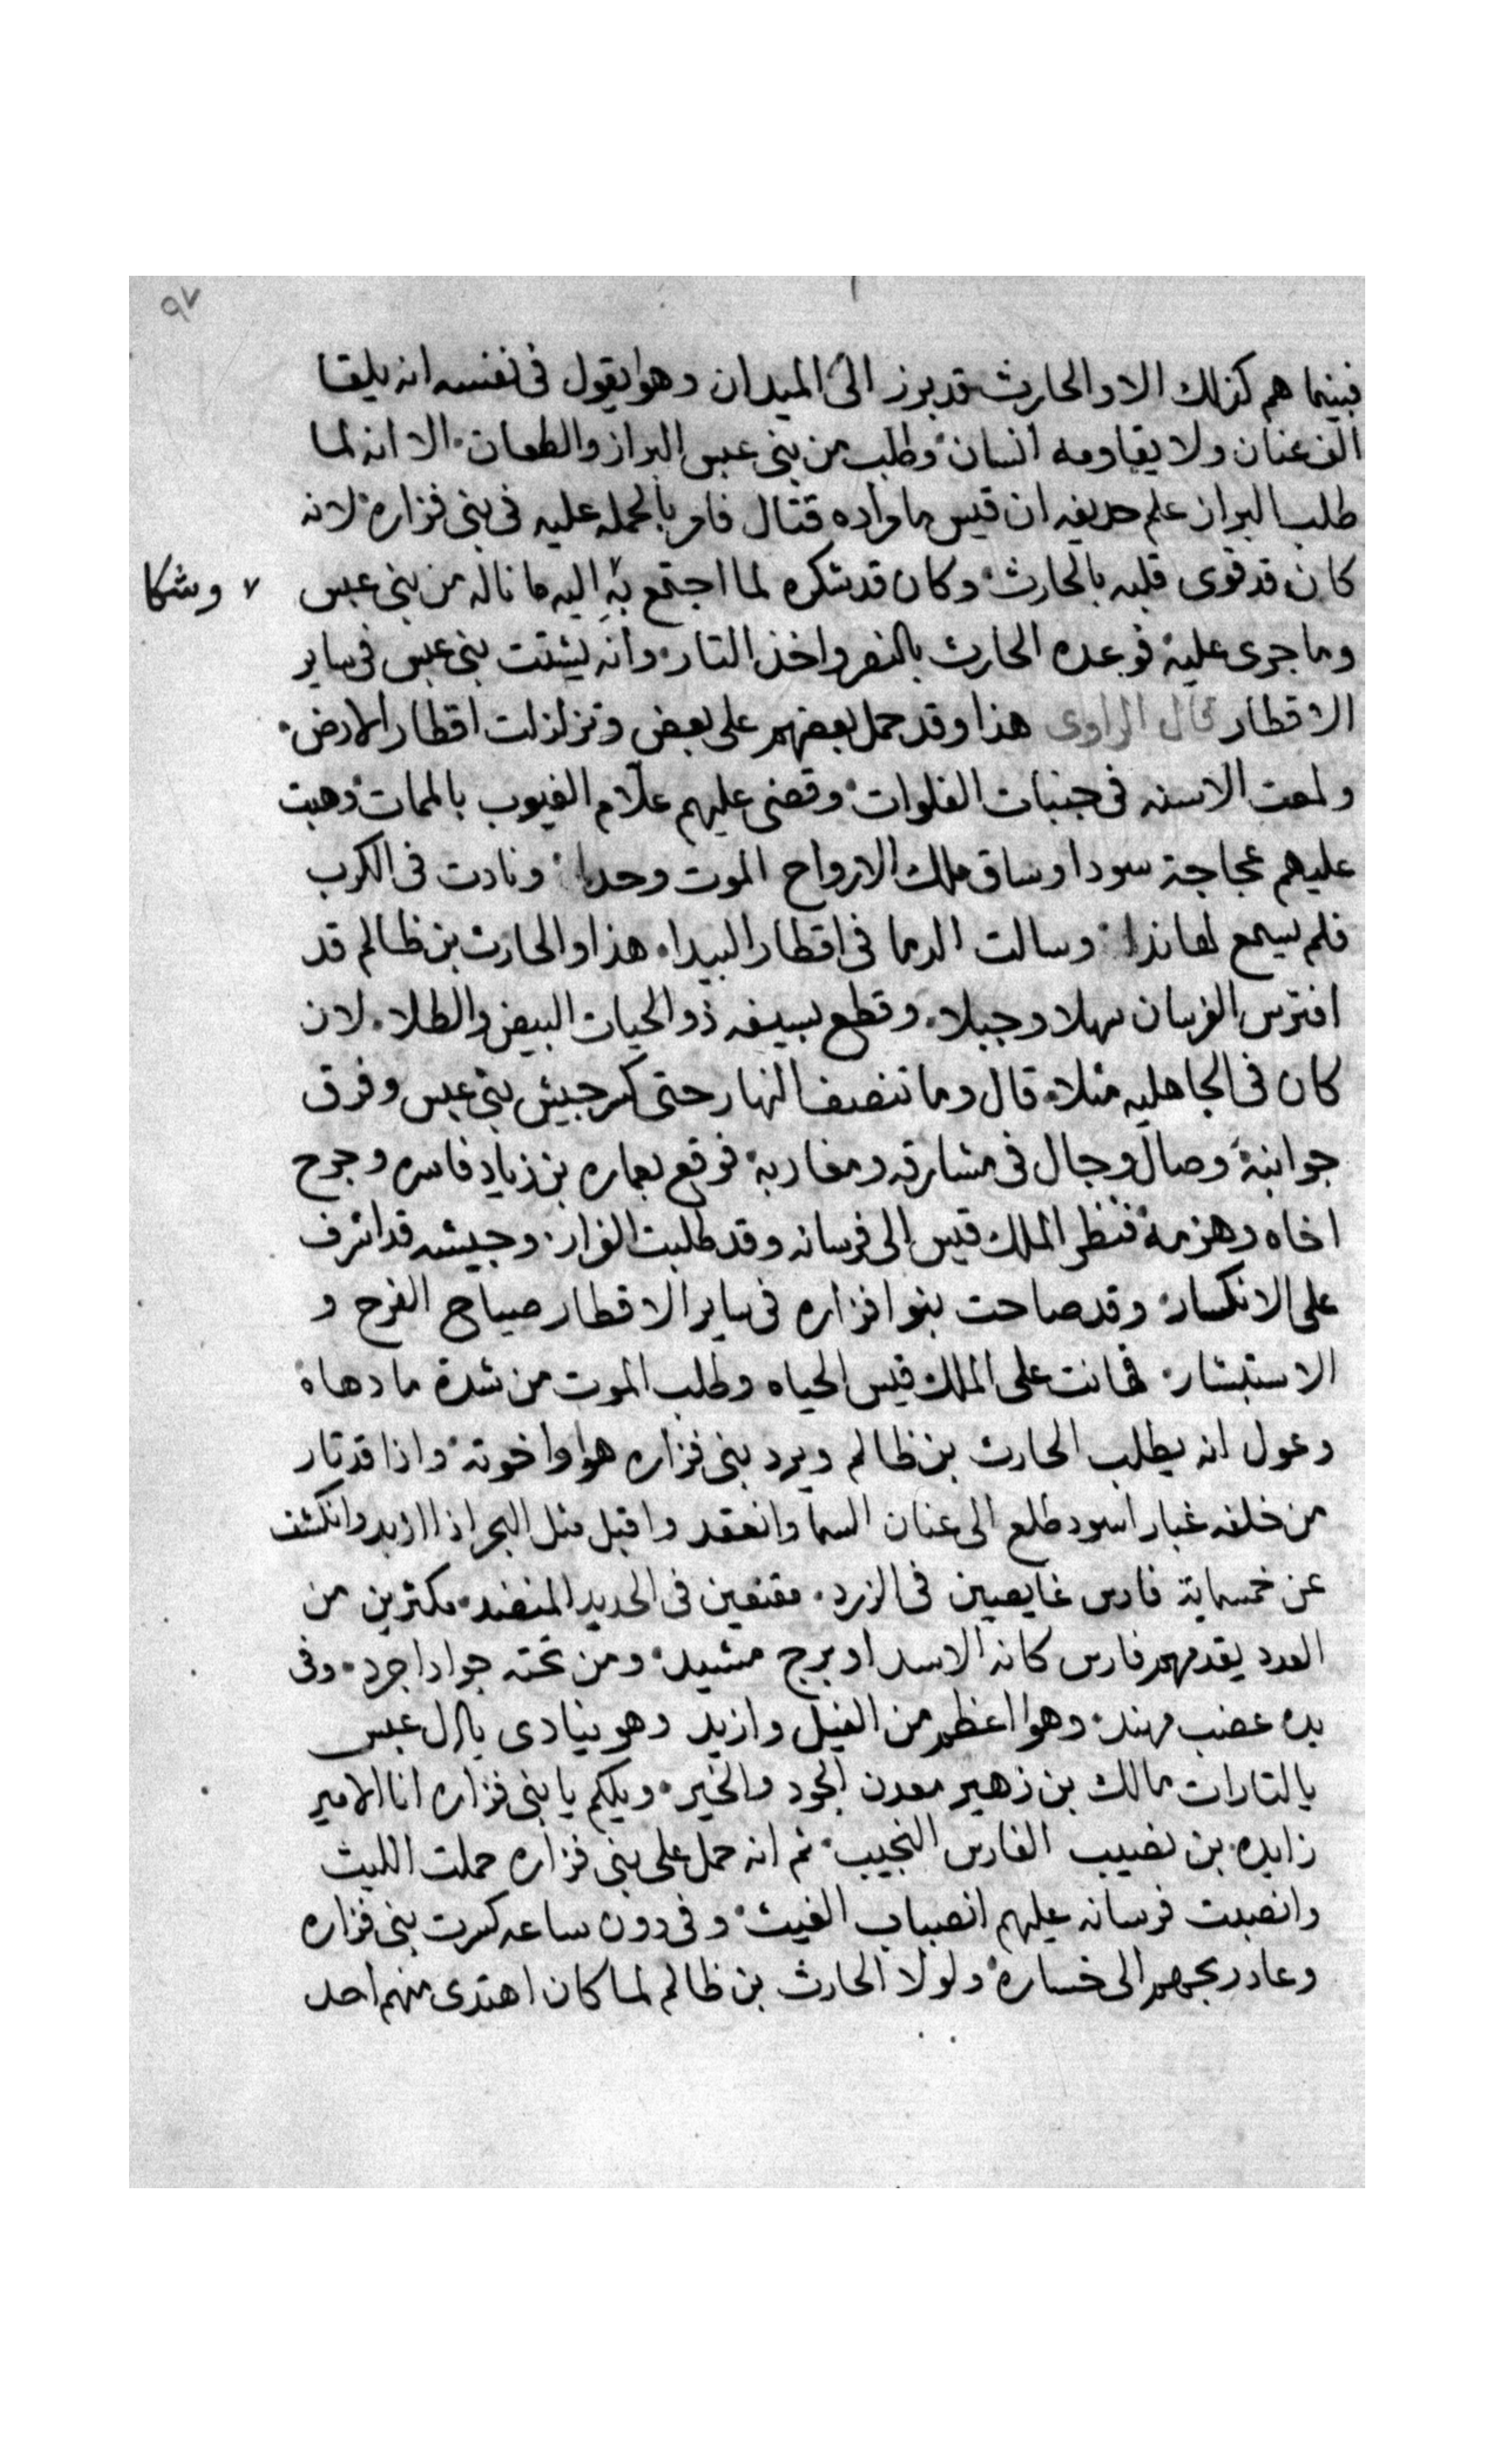 ٩٧
فبينما هم كذلك الا والحارث قد برز الى الميدان وهوا يقول فى نفسه انه يلقا
الف عنان ولا يقاومه انسان وطلب من بنى عبس البراز والطعان الا انه لما
طلب البراز علم حديفه ان قيس ماراده قتال فامر بالحمله عليه فى بنى فزاره لانه
كان قد قوى قلبه بالحارث وكان قد شكره لما اجتمع به اليه ما ناله من بنى عبس
٧ وشكا
وما جرى عليه فوعده الحارث بالنصر واخذ التار وانه يشتت بنى عبس فى ساير
الاقطار قال الراوى هذا وقد حمل بعضهم على بعض وتزلزلت اقطار الارض
ولمعت الاسنه فى جنبات الفلوات وقضى عليهم علّام الغيوب بالممات وهبت
عليهم عجاجة سودا وساق ملك الارواح الموت وحدا ونادت فى الكرب
فلم يسمع لها ندا وسالت الدما فى اقطار البيدا هذا والحارث بن ظالم قد
افترس الفرسان سهلا وجبلا وقطع بسيفه ذو الحيات البيض والطلا لان
كان فى الجاهليه مثلا قال وما تنصف النهار حتى كسر جيش بنى عبس وفرق
جوانبه وصال وجال فى مشارقه ومغاربه فوقع بعماره بن زياد فاسره وجرح
اخاه وهزمه فنظر الملك قيس الى فرسانه وقد طلبت الفرار وجيشه قد اشرف
على الانكسار وقد صاحت بنوا فزاره فى ساير الاقطار صياح الفرح و
الاستبشار فهانت على الملك قيس الحياه وطلب الموت من شدة ما دهاه
وعول انه يطلب الحارث بن ظالم ويرد بنى فزاره هوا واخوته واذا قد تار
من خلفه غبار اسود طلع الى عنان السما وانعقد واقبل مثل البحر اذا ازبد وانكشف
عن خمسماية فارس غايصين فى الزرد مقنعين فى الحديد المنضد مكثرين من
العدد يقدمهم فارس كانه الاسد او برج مشيد ومن تحته جواد اجرد وفى
يده عضب مهند وهوا اعظم من الفيل وازيد وهو ينادى يا ال عبس
يا لتارات مالك بن زهير معدن الجود والخير ويلكم يا بنى فزاره انا الامير
زايده بن نصيب الفارس النجيب ثم انه حمل على بنى فزاره حملت الليث
وانصبت فرسانه عليهم انصباب الغيث وفى دون ساعه كسرت بنى فزاره
وعاد ربحهم الى خساره ولولا الحارث بن ظالم لما كان اهتدى منهم احد